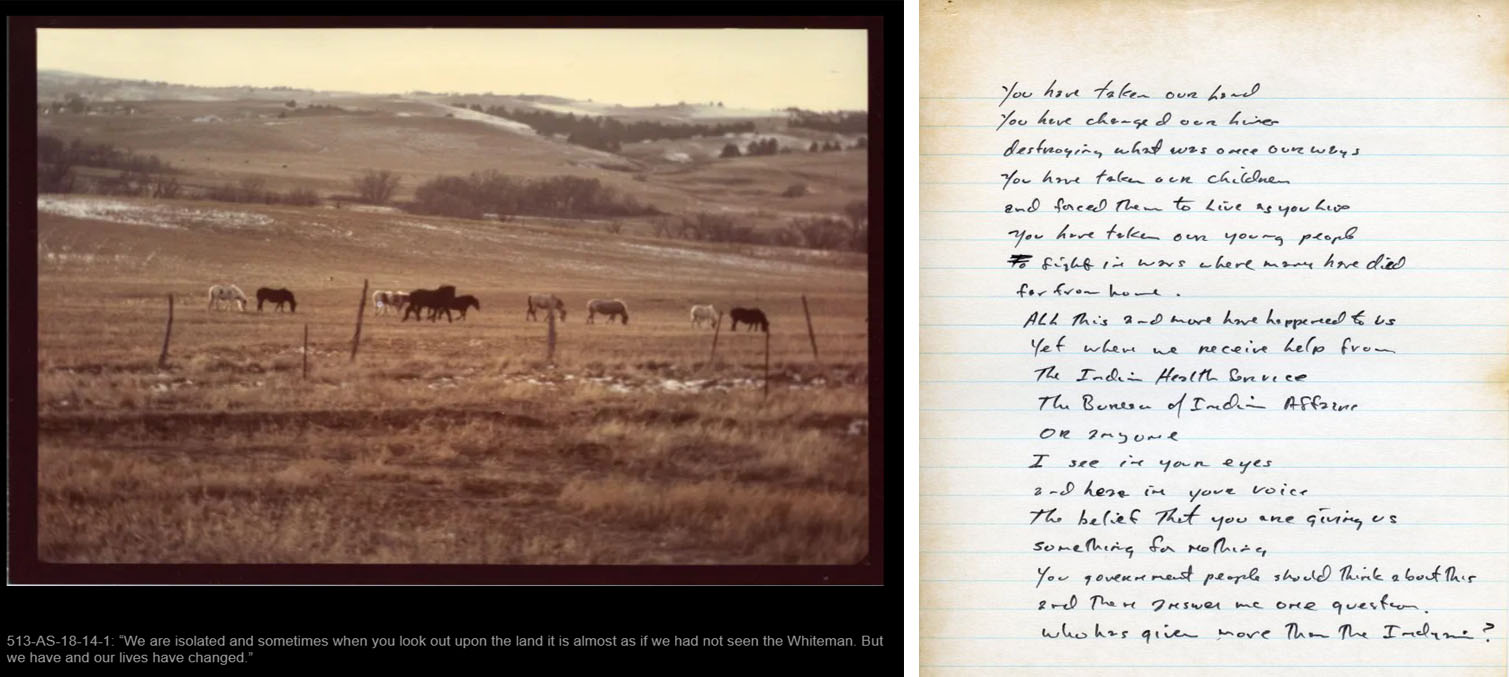 513-AS-18-14-1: “We are isolated and sometimes when you look out upon the land it is almost as if we had not seen the Whiteman. But
we have and our lives have changed.”
You have taken our land
You have changed our lives
destroying what was once our ways
You have taken our children
and forced them to live as you live
You have taken our young people
To fight in wars where many have died
far from home.
All this and more have happened to us
Yet where we receive help from
The Indian Health Service
The Bureau of Indian Affairs
OR anyone
I see in your eyes
and hear in your voice
the belief that you are giving us
something for nothing
You government people should think about this
and then answer me one question.
who has given more than the Indians?